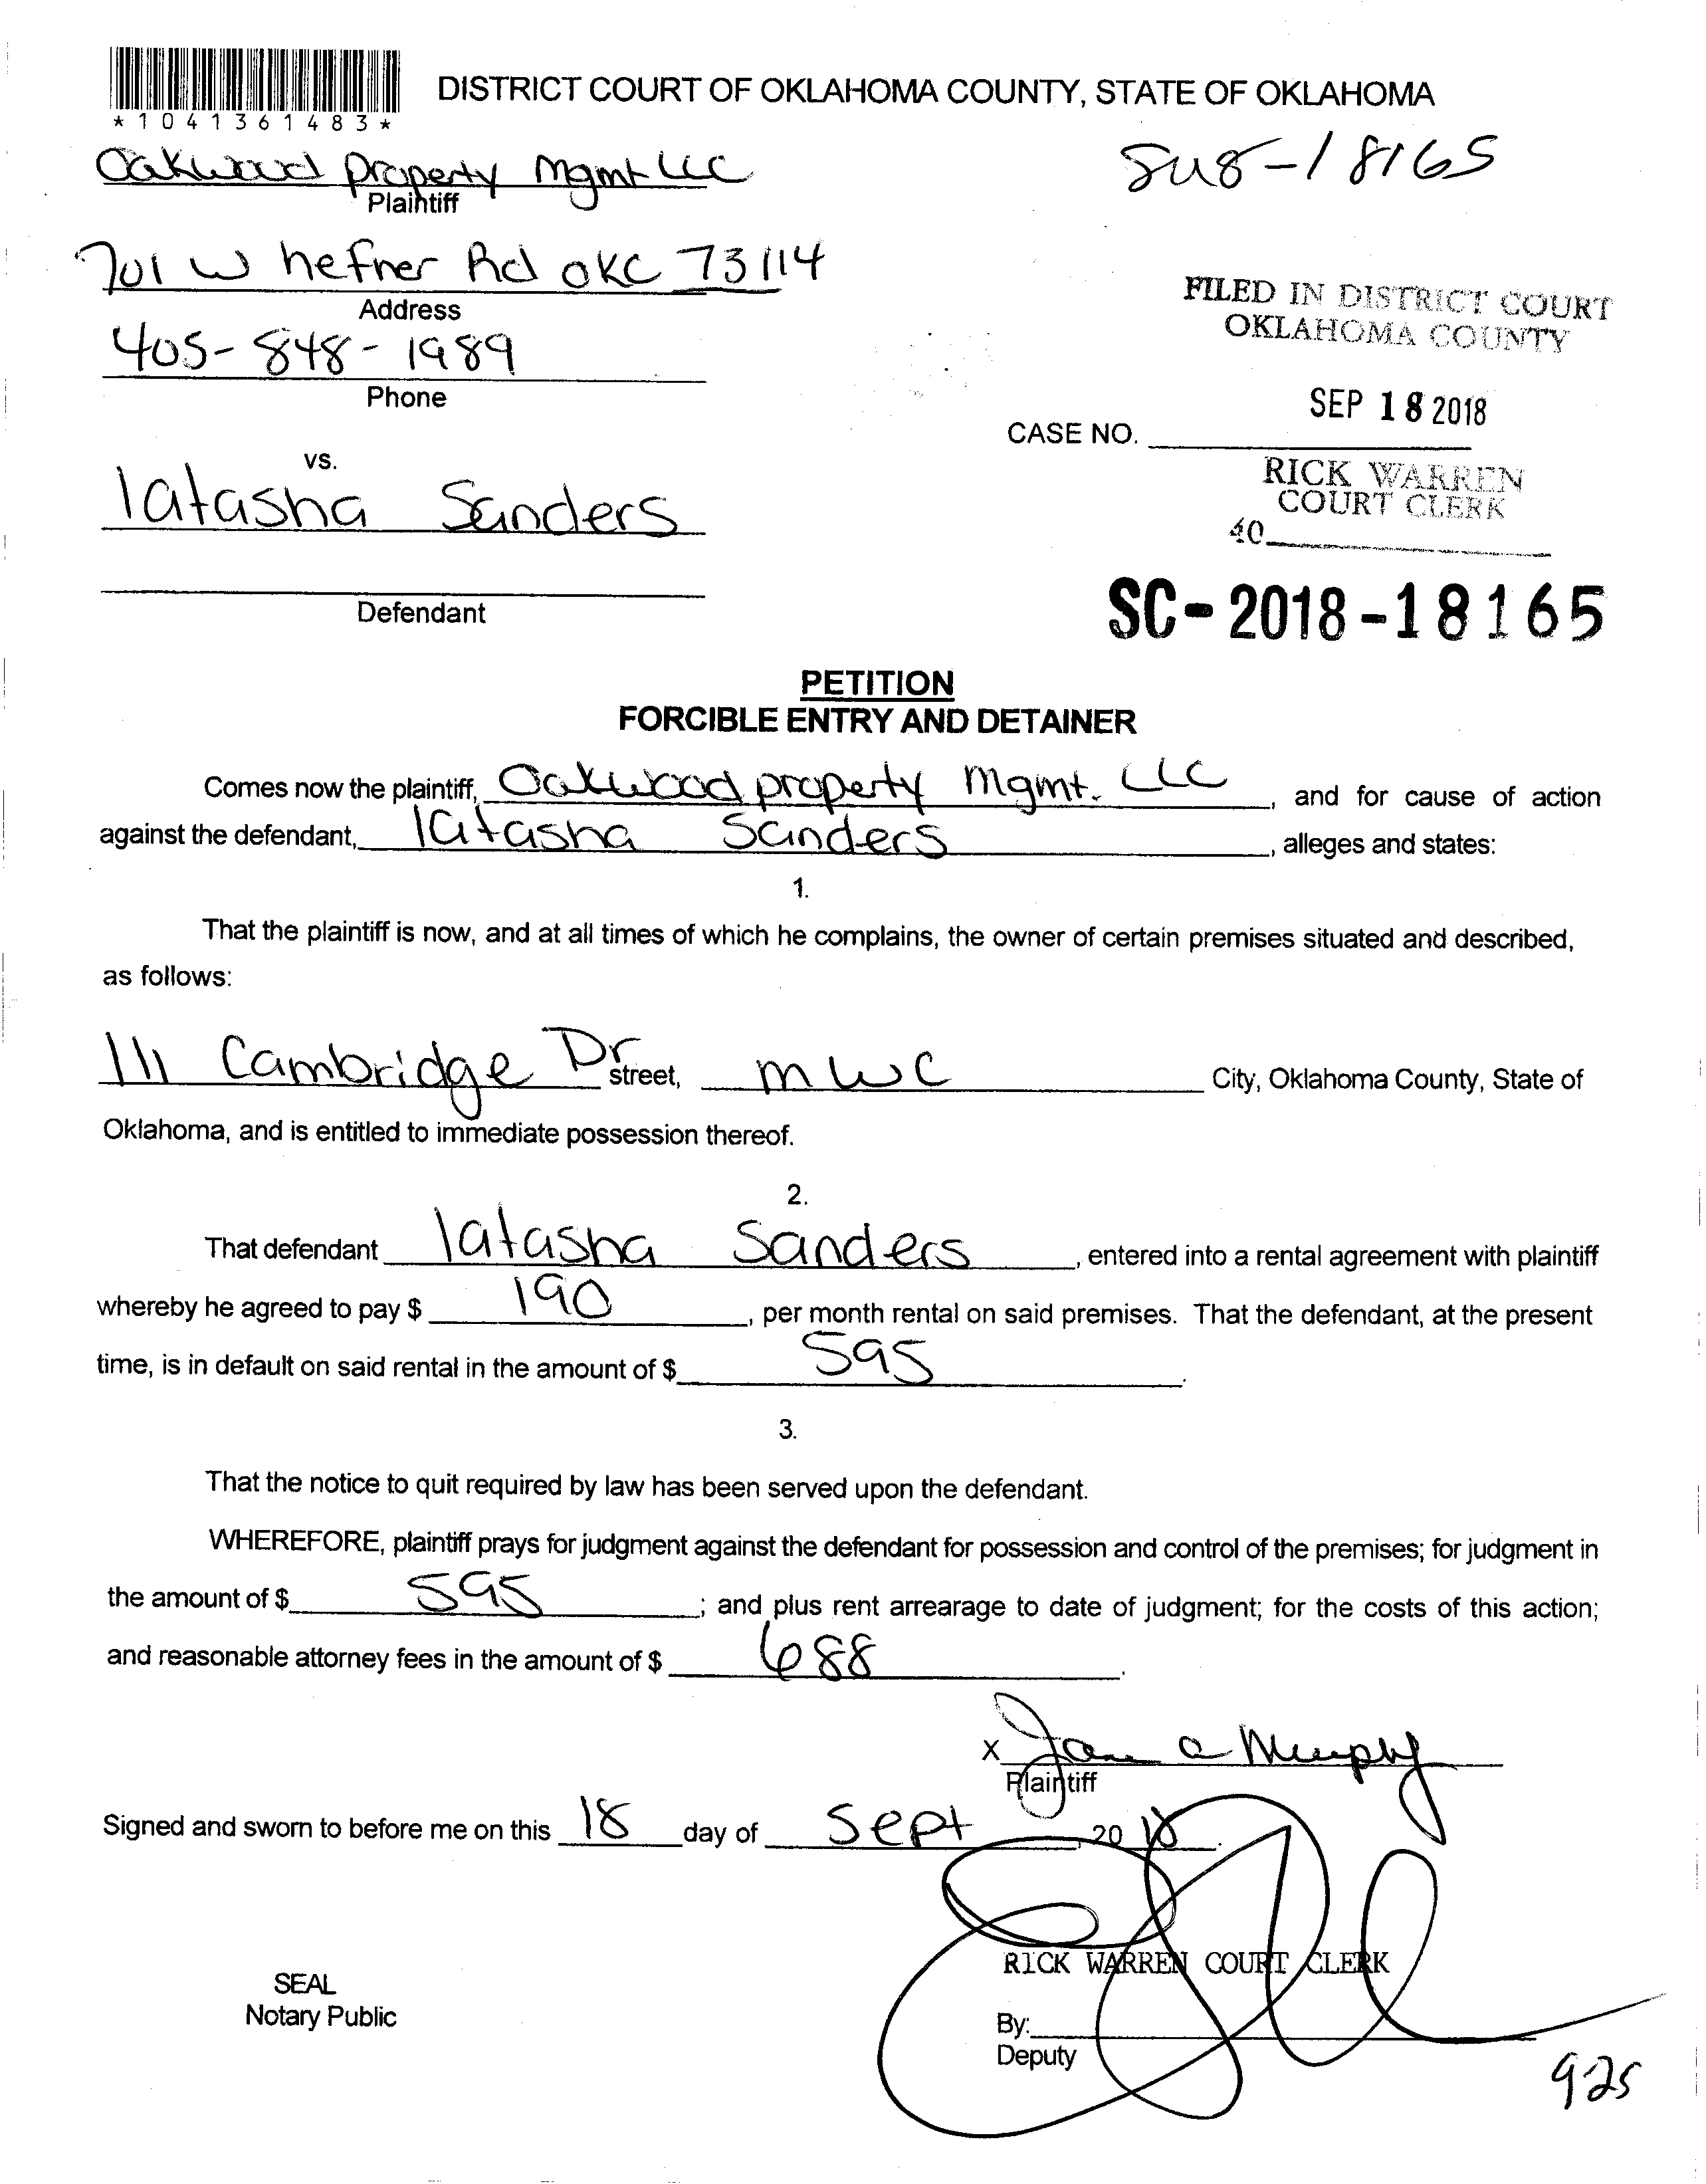 *1041361483*
DISTRICT COURT OF OKLAHOMA COUNTY, STATE OF OKLAHOMA
Oakwood property mgmt LLC
Plaintiff
-18165
701 W hefner Rd OKC 73114
Address
FILED IN DISTRICT COURT
OKLAHOMA COUNTY
405-848-1989
Phone
SEP 18 2018
CASE NO.
vs.
RICK WARREN
COURT CLERK
latasha Sanders
40
Defendant
SC-2018-18165
PETITION
FORCIBLE ENTRY AND DETAINER
Comes now the plaintiff, Oakwood property mgmt. LLC, and for cause of action
against the defendant, latasha Sanders, alleges and states:
1.
That the plaintiff is now, and at all times of which he complains, the owner of certain premises situated and described,
as follows:
111 Cambridge Dr street, mwc City, Oklahoma County, State of
Oklahoma, and is entitled to immediate possession thereof.
2.
That defendant latasha Sanders, entered into a rental agreement with plaintiff
whereby he agreed to pay $ 190, per month rental on said premises. That the defendant, at the present
time, is in default on said rental in the amount of $ 595.
3.
That the notice to quit required by law has been served upon the defendant.
WHEREFORE, plaintiff prays for judgment against the defendant for possession and control of the premises; for judgment in
the amount of $ 595; and plus rent arrearage to date of judgment; for the costs of this action;
and reasonable attorney fees in the amount of $ 688.
x Jane a Murphy
Plaintiff
Signed and sworn to before me on this 18 day of Sept, 2018.
RICK WARREN COURT CLERK
SEAL
Notary Public
By:
Deputy
925